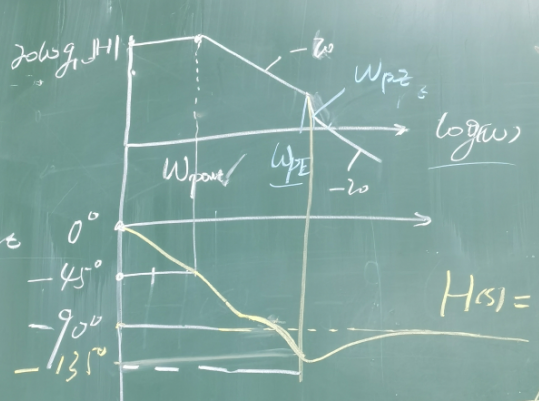 20log₁₀|H|
-20
ωPZ
log(ω)
ωPE
-20
0°
-45°
-90°
-135°
H(s)=